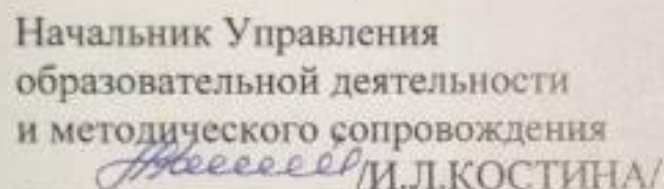 Начальник Управления
образовательной деятельности
и методического сопровождения
/И.Л.КОСТИНА/